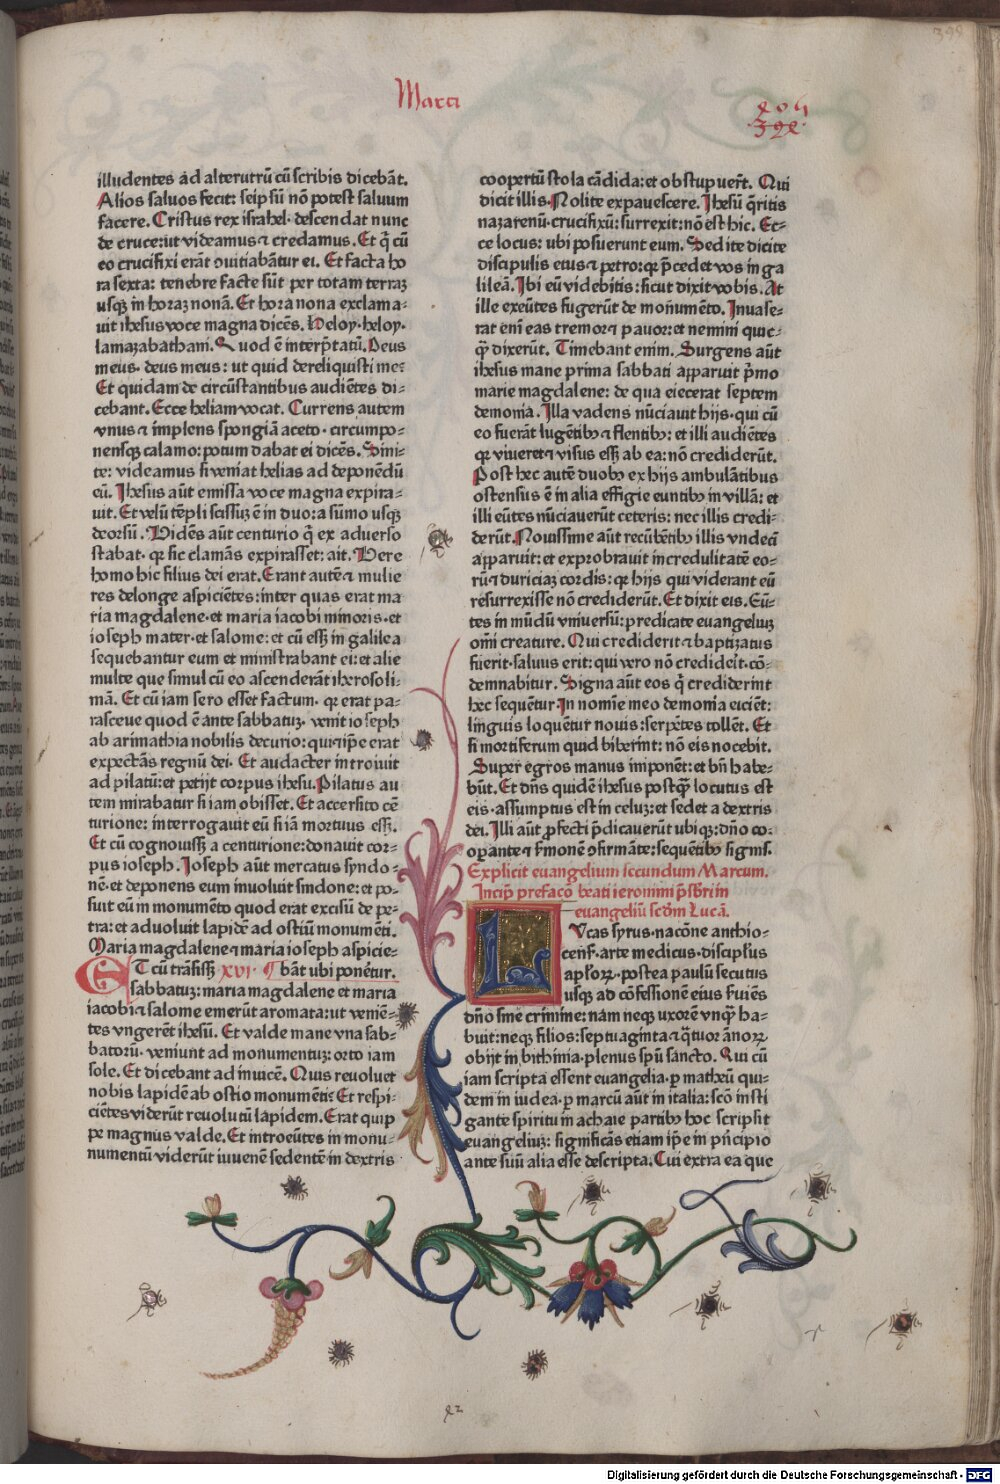 Marci
illudentes ad alterutrū cū scribis dicebāt.
Alios saluos fecit: seipsū nō potest saluum
facere. Cristus rex israhel· descendat nunc
de cruce: ut videamus ⁊ credamus. Et q̄ cū
eo crucifixi erāt ↄuitiabātur ei. Et facta ho
ra sexta: tenebre facte sūt per totam terraꝫ
usqꝫ in horaꝫ nonā. Et hora nona exclama⸗
uit ihesus voce magna dicēs. Heloy· heloy·
lamazabathani. Quod ē interp̄tatū. Deus
meus· deus meus: ut quid dereliquisti me:
Et quidam de circūstantibus audiētes di⸗
cebant. Ecce heliam vocat. Currens autem
vnus ⁊ implens spongiā aceto· circumpo⸗
nensqꝫ calamo: potum dabat ei dicēs. Sini⸗
te: videamus si veniat helias ad deponēdū
eū. Ihesus aūt emissa voce magna expira⸗
uit. Et velū tēpli scissuꝫ ē in duo: a sūmo usqꝫ
deorsū. Vidēs aūt centurio q̄ ex aduerso
stabat· qꝛ sic clamās expirasset: ait. Vere
homo hic filius dei erat. Erant autē ⁊ mulie
res delonge aspiciētes: inter quas erat ma
ria magdalene· et maria iacobi minoris· et
ioseph mater· et salome: et cū essꝫ in galilea
sequebantur eum et ministrabant ei: et alie
multe que simul cū eo ascenderāt iherosoli⸗
mā. Et cū iam sero esset factum· qꝛ erat pa⸗
rasceue quod ē ante sabbatuꝫ· venit ioseph
ab arimathia nobilis decurio: qui ⁊ ip̄e erat
expectās regnū dei. Et audacter introiuit
ad pilatū: et petijt corpus ihesu. Pilatus au
tem mirabatur si iam obisset. Et accersito cē
turione: interrogauit eū si iā mortuus essꝫ.
Et cū cognouissꝫ a centurione: donauit cor⸗
pus ioseph. Ioseph aūt mercatus syndo⸗
nē· et deponens eum inuoluit sindone: et po⸗
suit eū in monumēto quod erat excisū de pe⸗
tra: et aduoluit lapidē ad ostiū monumēti.
Maria magdalene ⁊ maria ioseph aspicie⸗
ET cū trāsissꝫ XVI· ¶ bāt ubi ponētur.
sabbatuꝫ: maria magdalene et maria
iacobi ⁊ salome emerūt aromata: ut veniē⸗
tes vngerēt ihesū. Et valde mane vna sab⸗
batorū· veniunt ad monumentuꝫ: orto iam
sole. Et dicebant ad inuicē. Quis reuoluet
nobis lapidē ab ostio monumēti: Et respi⸗
ciētes viderūt reuolutū lapidem. Erat quip
pe magnus valde. Et introeūtes in monu⸗
numentū viderūt iuuenē sedentē in dextris
coopertū stola cādida: et obstupuer̄t. Qui
dicit illis. Nolite expauescere. Ihesū q̄ritis
nazarenū· crucifixū: surrexit: nō est hic. Ec⸗
ce locus: ubi posuerunt eum. Sed ite dicite
discipulis eius ⁊ petro: qꝛ p̄cedet vos in ga
lileā. Ibi eū videbitis: sicut dixit vobis. At
ille exeūtes fugerūt de monumēto. Inuase⸗
rat eni eas tremor ⁊ pauor: et nemini quic⸗
q̄ dixerūt. Timebant enim. Surgens aūt
ihesus mane prima sabbati apparuit p̄mo
marie magdalene: de qua eiecerat septem
demonia. Illa vadens nūciauit hijs· qui cū
eo fuerāt lugētibꝫ ⁊ flentibꝫ: et illi audiētes
qꝛ viueret ⁊ visus essꝫ ab ea: nō crediderūt.
Post hec autē duobꝫ ex hijs ambulātibus
ostensus ē in alia effigie euntibꝫ in villā: et
illi eūtes nūciauerūt ceteris: nec illis credi⸗
derūt. Nouissime aūt recūbētibꝫ illis vndeci
apparuit: et exprobrauit incredulitatē eo⸗
rū ⁊ duriciaꝫ cordis: qꝛ hijs qui viderant eū
resurrexisse nō crediderūt. Et dixit eis. Eū⸗
tes in mūdū vniuersū: predicate euangeliuꝫ
om̄i creature. Qui crediderit ⁊ baptizatus
fuerit· saluus erit: qui vero nō credider̄it· cō⸗
demnabitur. Signa aūt eos q̄ crediderint
hec sequētur. In nomie meo demonia eiciēt:
linguis loquētur nouis: serpētes tollēt. Et
si mortiferum quid biberint: nō eis nocebit.
Super egros manus imponēt: et bn̄ habe⸗
būt. Et dn̄s quidē ihesus postq̄ locutus est
eis· assumptus est in celuꝫ: et sedet a dextris
dei. Illi aūt ꝓfecti p̄dicauerūt ubiqꝫ: dn̄o co⸗
oꝑante ⁊ s̄monē ↄfirmāte: sequētibꝫ signis.
Explicit euangelium secundum Marcum.
Incip̄ prefaco̅ beati ieronimi p̄sbr̄i in
euangeliū scd̄m Lucā.
LVcas syrus· nacōne anthio⸗
cens̄· arte medicus· discip̄lus
ap̄loꝝ· postea paulū secutus
usqꝫ ad cōfessionē eius s̄uiēs
dn̄o sine crimine: nam neqꝫ uxorē vnq̄ ha⸗
buit: neqꝫ filios: septuaginta ⁊ q̄tuor ānoꝝ
obijt in bithinia· plenus spū sancto. Qui cū
iam scripta essent euangelia· ꝑ matheū qui⸗
dem in iudea· ꝑ marcū aūt in italia: scō insti
gante spiritu in achaie partibꝫ hoc scripsit
euangeliuꝫ: significās etiam ip̄e in pn̄cipio
ante suū alia esse descripta. Cui extra ea que
Digitalisierung gefördert durch die Deutsche Forschungsgemeinschaft - DFG